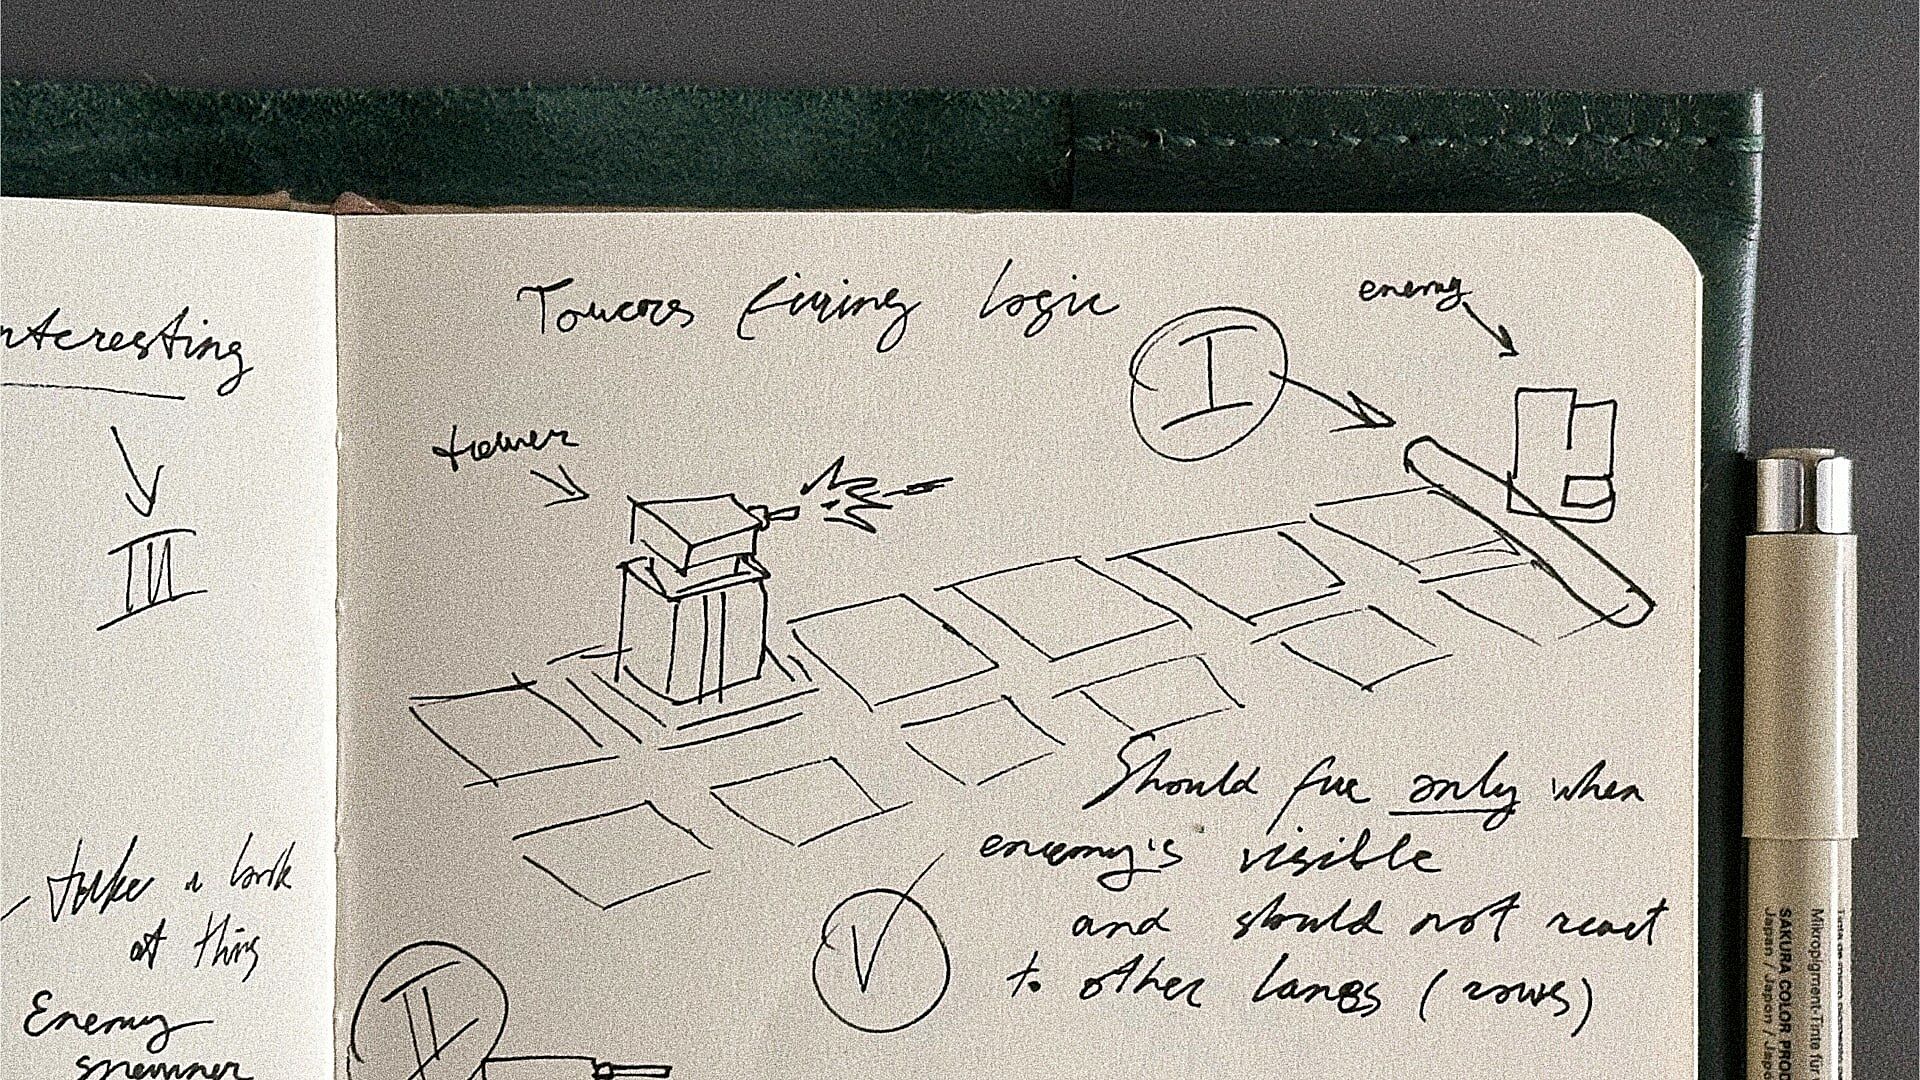 interesting
III
take a look
at this
Enemy
spawner
Towers firing logic
I
enemy
tower
Should fire only when
enemy's visible
and should not react
to other lanes (rows)
V
II
SAKURA COLOR PROD
Japan / Japon / Japa
Mikropigment-Tinte für